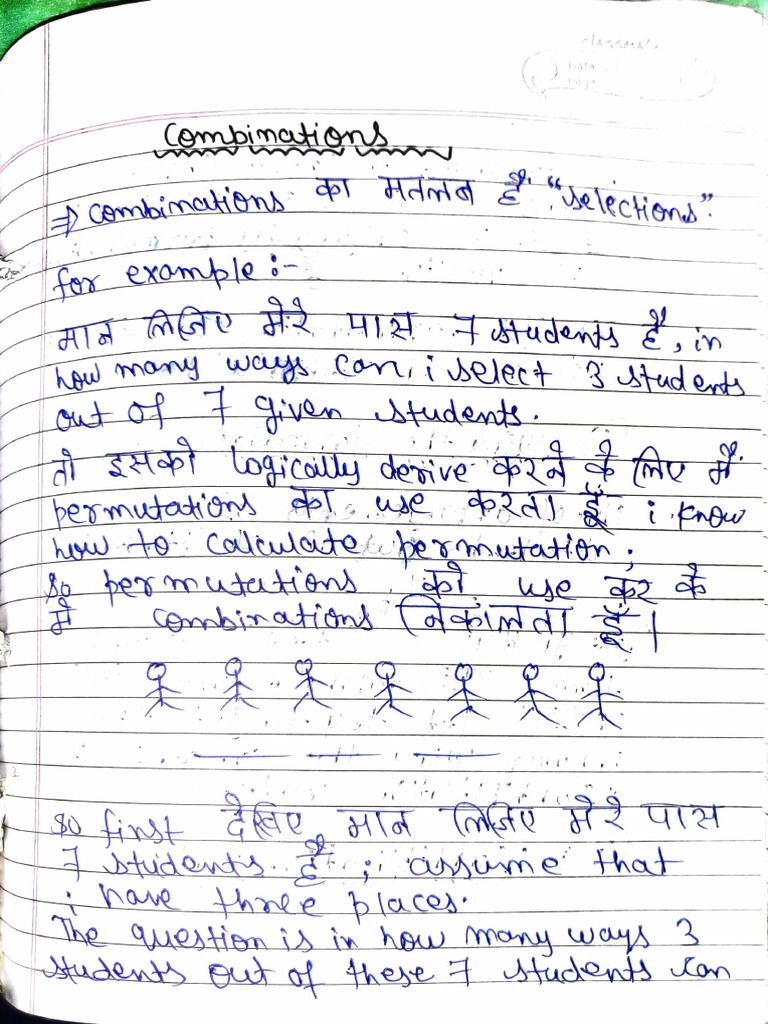 classmate
Date
Page
Combinations
⇒ combinations का मतलब है "selections".
for example :-
मान लिजिए मेरे पास 7 students हैं, in
how many ways can i select 3 students
out of 7 given students.
तो इसको logically derive करने के लिए मैं
permutations का use करता हूँ i know
how to calculate permutation,
so permutations को use कर के
मैं combinations निकालता हूँ।
so first देखिए मान लिजिए मेरे पास
7 students हैं ; assume that
i have three places.
The question is in how many ways 3
students out of these 7 students can